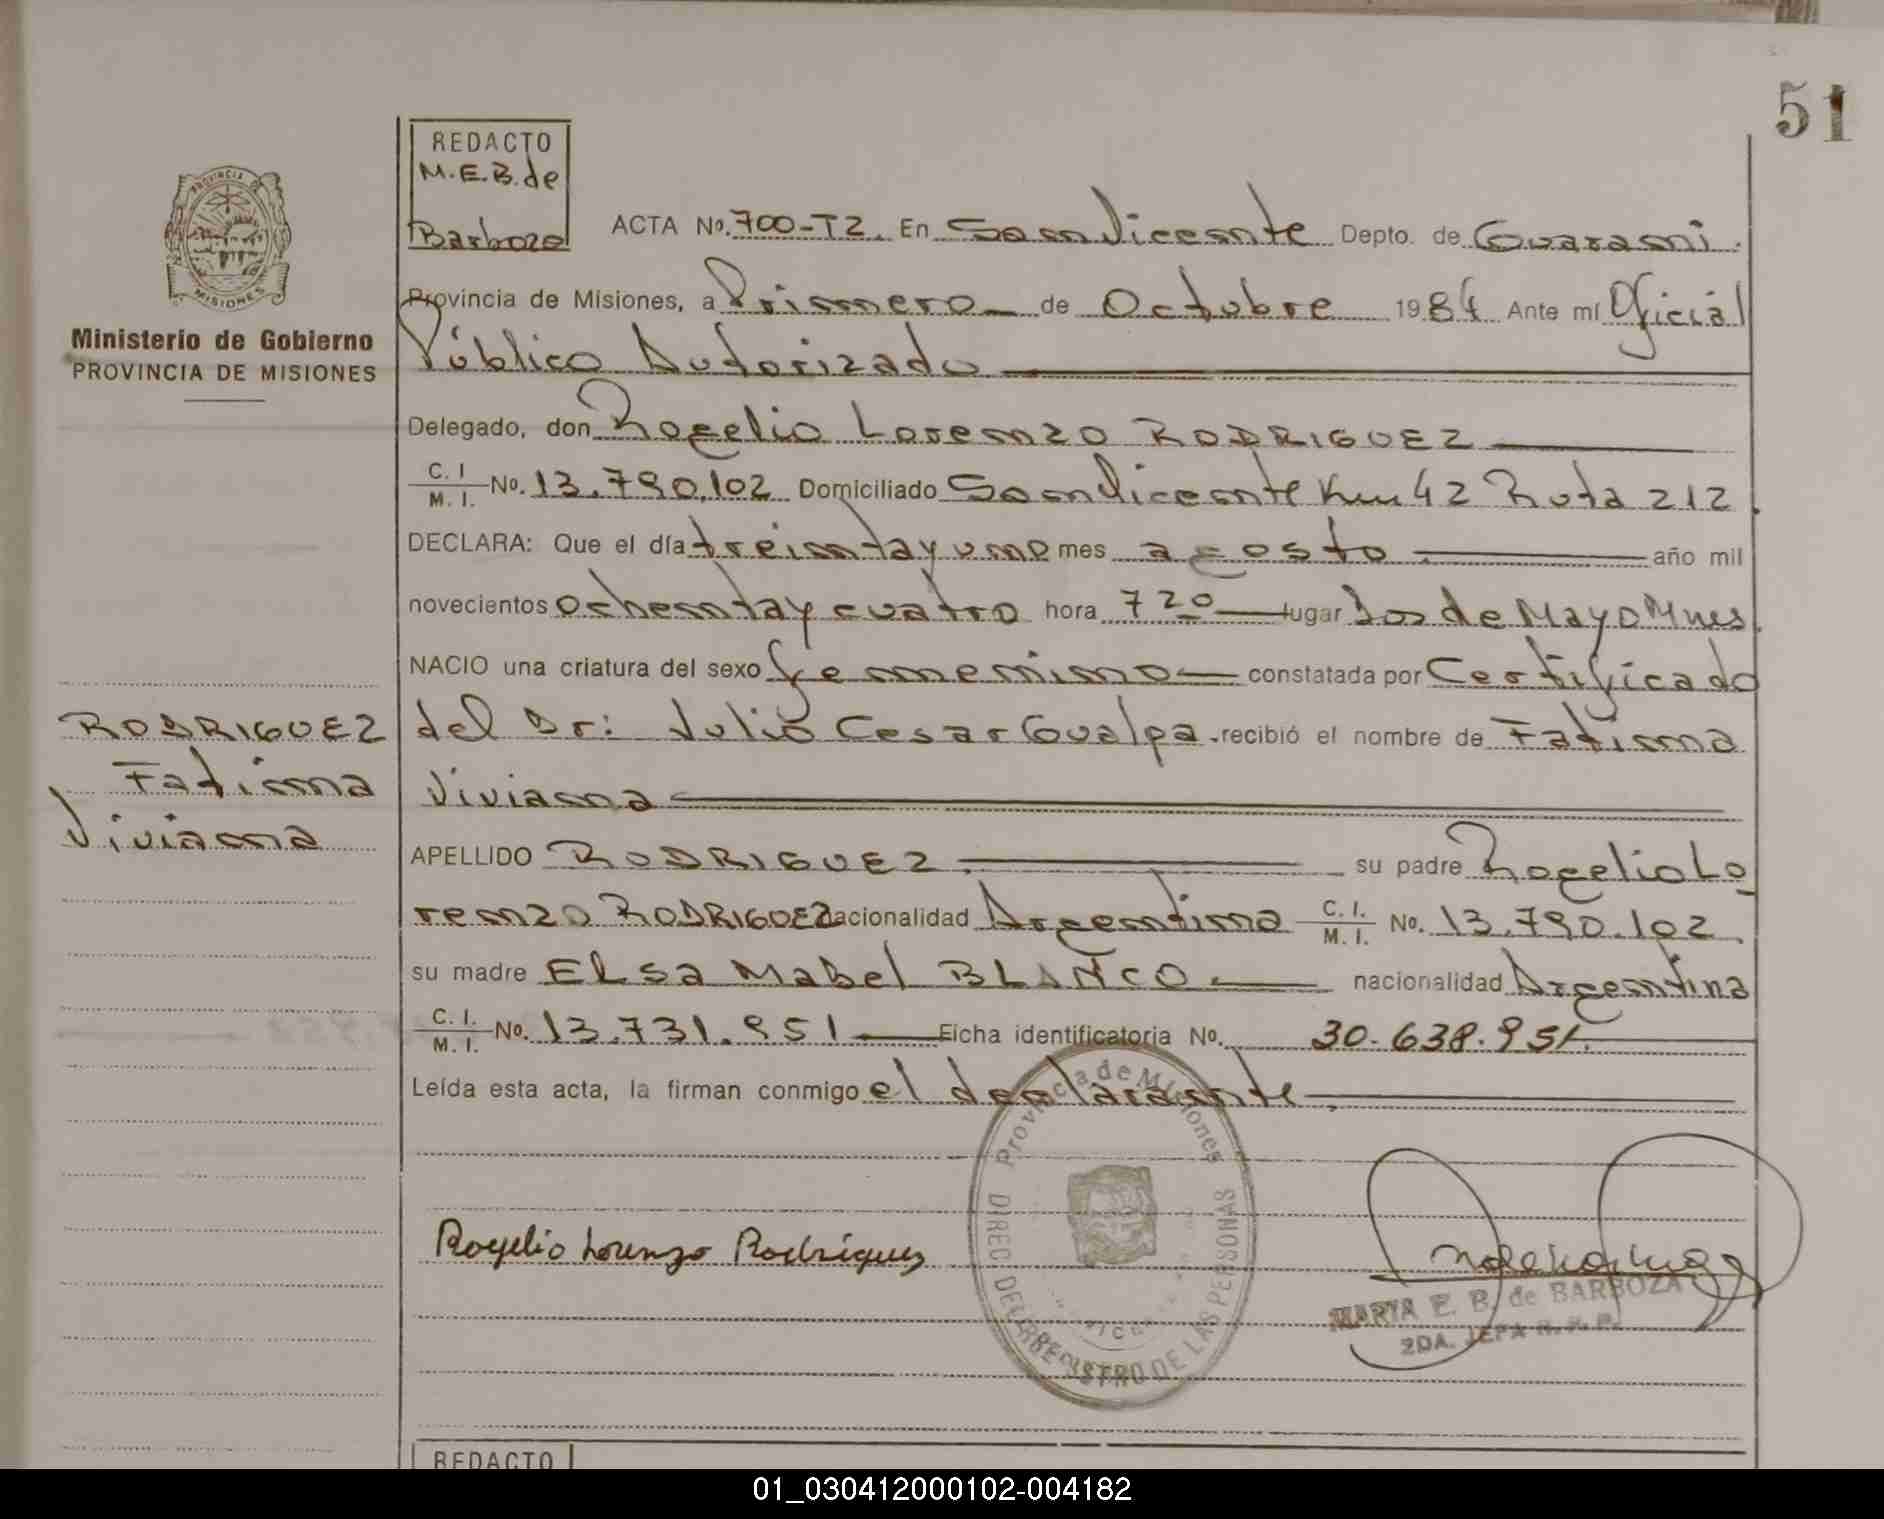 51
REDACTO
M.E.B. de
Barboza
ACTA No. 700-T2. En San Vicente Depto. de Guarani.
Provincia de Misiones, a Primero de Octubre 1984 Ante mí Oficial
Público Autorizado
PROVINCIA DE
MISIONES
Ministerio de Gobierno
PROVINCIA DE MISIONES
Delegado, don Rogelio Lorenzo RODRIGUEZ
C. I. / M. I. No. 13.790.102 Domiciliado San Vicente Km 42 Ruta 212.
DECLARA: Que el día treinta y uno mes agosto año mil
novecientos ochenta y cuatro hora 7 20 lugar Dos de Mayo Mnes.
NACIO una criatura del sexo femenino constatada por Certificado
del Dr: Julio Cesar Gualpa. recibió el nombre de Fatima
Viviana
RODRIGUEZ
Fatima
Viviana
APELLIDO RODRIGUEZ su padre Rogelio Lo
renzo RODRIGUEZ nacionalidad Argentina C. I. / M. I. No. 13.790.102.
su madre Elsa Mabel BLANCO nacionalidad Argentina
C. I. / M. I. No. 13.731.951 Ficha identificatoria No. 30.638.951.
Leída esta acta, la firman conmigo el declarante
Provincia de Misiones
DIREC DEL REGISTRO DE LAS PERSONAS
Rogelio Lorenzo Rodríguez
MARIA E. B. de BARBOZA
2DA. JEFA R. P.
REDACTO
01_030412000102-004182